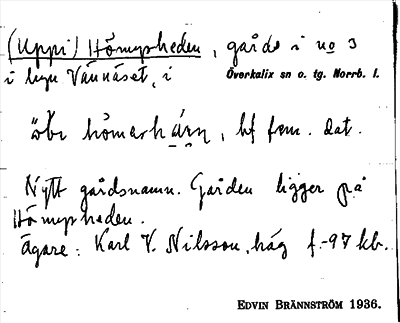 (Uppi) Hömypheden, gårds i no 3
i byn Vännäset, i Överkalix sn o. tg. Norrb. l.
hömarh , bf fem. dat.
Nytt gårdsnamn. Gården ligger på
Hömypheden.
Ägare: Karl V. Nilsson, häg f.-97 kb.
EDVIN BRÄNNSTRÖM 1936.